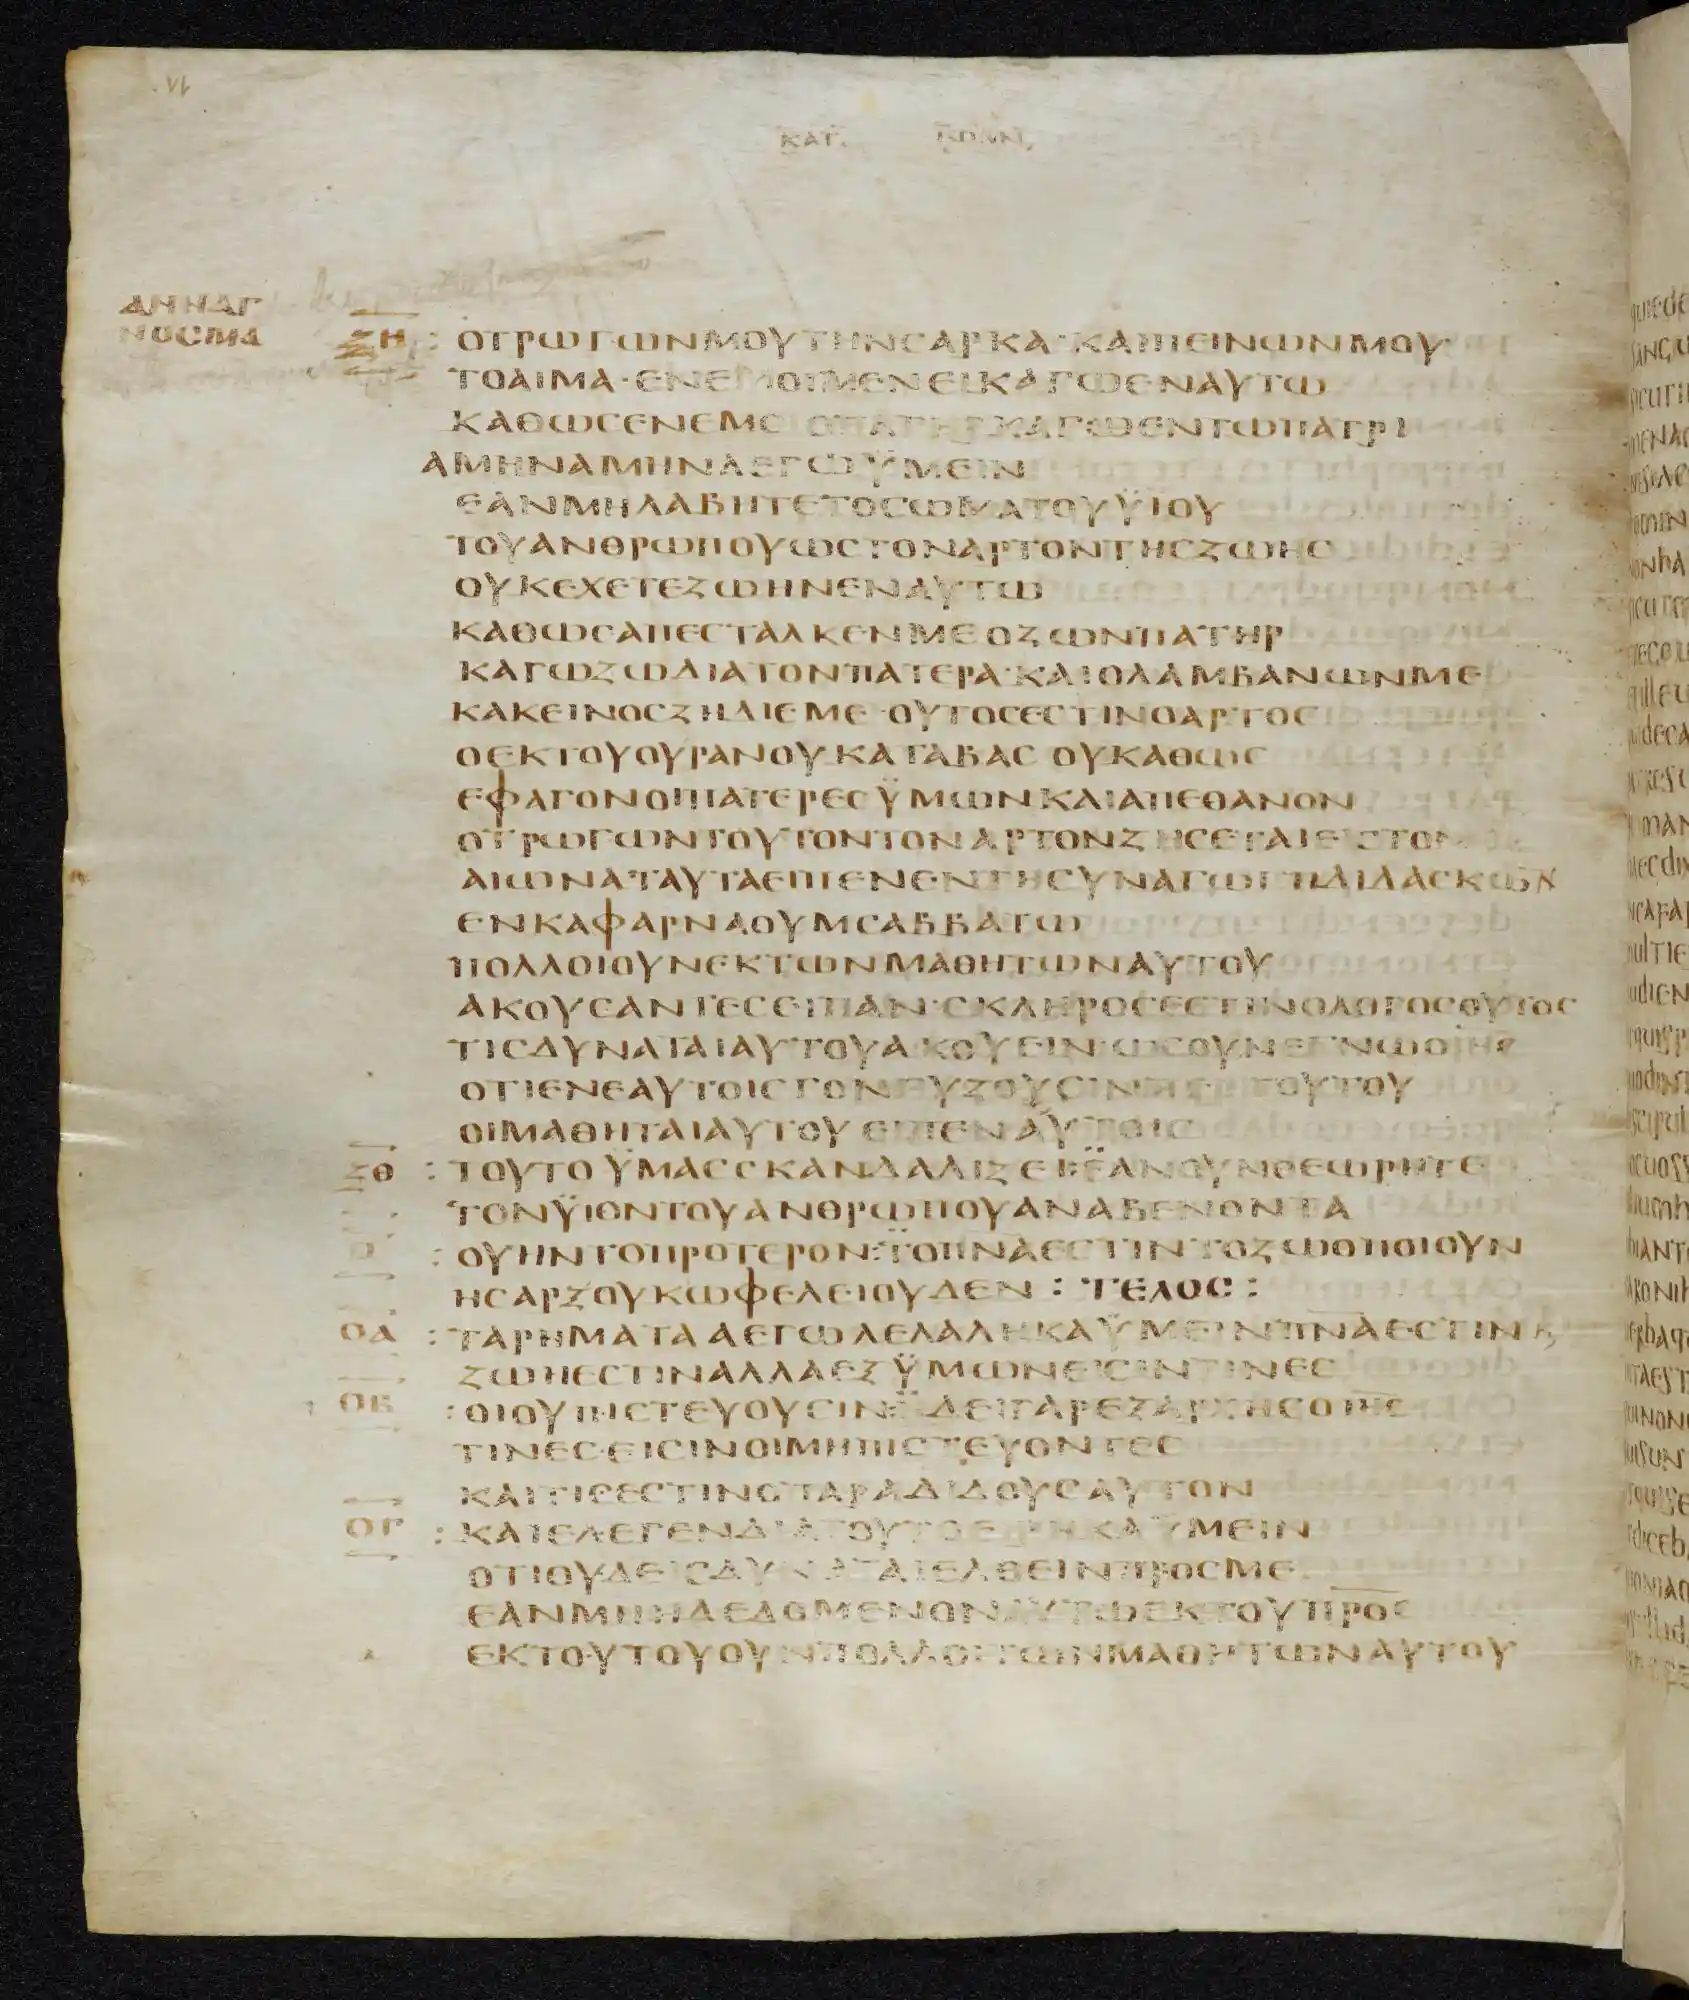 ΚΑΤ. ΙΩΑΝ,
ΑΝΝΑΓ
ΝΟСΜΑ
ΞΗ : ΟΤΡΩΓΩΝΜΟΥΤΗΝСΑΡΚΑ· ΚΑΙΠΕΙΝΩΝΜΟΥ
ΤΟΑΙΜΑ· ΕΝΕΜΟΙΜΕΝΕΙΚΑΓΩΕΝΑΥΤΩ
ΚΑΘΩСΕΝΕΜΟΙΟΠΑΤΗΡΚΑΓΩΕΝΤΩΠΑΤΡΙ
ΑΜΗΝΑΜΗΝΛΕΓΩΫΜΕΙΝ
ΕΑΝΜΗΛΑΒΗΤΕΤΟСΩΜΑΤΟΥΫΙΟΥ
ΤΟΥΑΝΘΡΩΠΟΥΩСΤΟΝΑΡΤΟΝΤΗСΖΩΗС
ΟΥΚΕΧΕΤΕΖΩΗΝΕΝΑΥΤΩ
ΚΑΘΩСΑΠΕСΤΑΛΚΕΝΜΕΟΖΩΝΠΑΤΗΡ
ΚΑΓΩΖΩΔΙΑΤΟΝΠΑΤΕΡΑ· ΚΑΙΟΛΑΜΒΑΝΩΝΜΕ
ΚΑΚΕΙΝΟСΖΗΔΙΕΜΕ· ΟΥΤΟСΕСΤΙΝΟΑΡΤΟС
ΟΕΚΤΟΥΟΥΡΑΝΟΥΚΑΤΑΒΑС ΟΥΚΑΘΩС
ΕΦΑΓΟΝΟΙΠΑΤΕΡΕСΫΜΩΝΚΑΙΑΠΕΘΑΝΟΝ
ΟΤΡΩΓΩΝΤΟΥΤΟΝΤΟΝΑΡΤΟΝΖΗСΕΤΑΙΕΙСΤΟΝ
ΑΙΩΝΑ· ΤΑΥΤΑΕΙΠΕΝΕΝΤΗСΥΝΑΓΩΓΗΔΙΔΑСΚΩΝ
ΕΝΚΑΦΑΡΝΑΟΥΜСΑΒΒΑΤΩ
ΠΟΛΛΟΙΟΥΝΕΚΤΩΝΜΑΘΗΤΩΝΑΥΤΟΥ
ΑΚΟΥСΑΝΤΕСΕΙΠΑΝ· СΚΛΗΡΟСΕСΤΙΝΟΛΟΓΟСΟΥΤΟС
ΤΙСΔΥΝΑΤΑΙΑΥΤΟΥΑΚΟΥΕΙΝ· ΩСΟΥΝΕΓΝΩΟΙΗС
ΟΤΙΕΝΕΑΥΤΟΙСΓΟΝΓΥΖΟΥСΙΝΠΕΡΙΤΟΥΤΟΥ
ΟΙΜΑΘΗΤΑΙΑΥΤΟΥ ΕΙΠΕΝΑΥΤΟΙС
ΞΘ : ΤΟΥΤΟΫΜΑССΚΑΝΔΑΛΙΖΕΙ· ΕΑΝΟΥΝΘΕΩΡΗΤΕ
ΤΟΝΫΙΟΝΤΟΥΑΝΘΡΩΠΟΥΑΝΑΒΕΝΟΝΤΑ
Ο : ΟΥΗΝΤΟΠΡΟΤΕΡΟΝ: ΤΟΠΝΑΕСΤΙΝΤΟΖΩΟΠΟΙΟΥΝ
ΗСΑΡΞΟΥΚΩΦΕΛΕΙΟΥΔΕΝ : ΤΕΛΟС :
ΟΑ : ΤΑΡΗΜΑΤΑΑΕΓΩΛΕΛΑΛΗΚΑΫΜΕΙΝΠΝΑΕСΤΙΝΚ
ΖΩΗΕСΤΙΝΑΛΛΑΕΞΫΜΩΝΕΙСΙΝΤΙΝΕС
ΟΒ : ΟΙΟΥΠΙСΤΕΥΟΥСΙΝ· ΗΔΕΙΓΑΡΕΞΑΡΧΗСΟΙΗС
ΤΙΝΕСΕΙСΙΝΟΙΜΗΠΙСΤΕΥΟΝΤΕС
ΚΑΙΤΙСΕСΤΙΝΟΠΑΡΑΔΙΔΟΥСΑΥΤΟΝ
ΟΓ : ΚΑΙΕΛΕΓΕΝΔΙΑΤΟΥΤΟΕΙΡΗΚΑΫΜΕΙΝ
ΟΤΙΟΥΔΕΙСΔΥΝΑΤΑΙΕΛΘΕΙΝΠΡΟСΜΕ
ΕΑΝΜΗΗΔΕΔΟΜΕΝΟΝΑΥΤΩΕΚΤΟΥΠΡΟС
ΕΚΤΟΥΤΟΥΟΥΝΠΟΛΛΟΙΤΩΝΜΑΘΗΤΩΝΑΥΤΟΥ